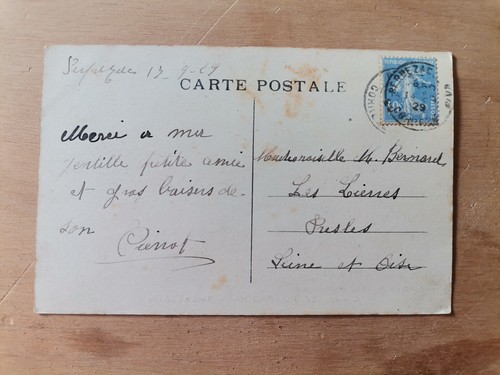 13-9-29
CARTE POSTALE
Merci a ma
gentille petite amie
et gros baisers de
son
Pierrot
Mademoiselle M. Bernard
Les Lierres
Presles
Seine et Oise
29